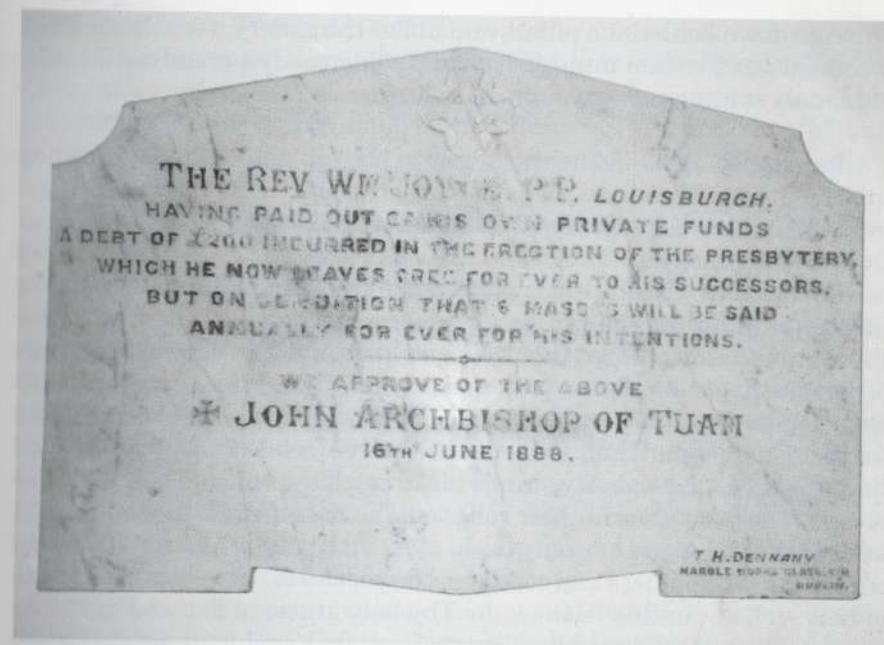 THE REV WM JOYCE. P.P. LOUISBURCH.
HAVING PAID OUT OF HIS OWN PRIVATE FUNDS
A DEBT OF £200 INCURRED IN THE ERECTION OF THE PRESBYTERY,
WHICH HE NOW LEAVES FREE FOR EVER TO HIS SUCCESSORS,
BUT ON CONDITION THAT 6 MASSES WILL BE SAID
ANNUALLY FOR EVER FOR HIS INTENTIONS.
WE APPROVE OF THE ABOVE
✠ JOHN ARCHBISHOP OF TUAM
16TH JUNE 1888.
T. H. DENNANY
MARBLE WORKS GLASNEVIN
DUBLIN.